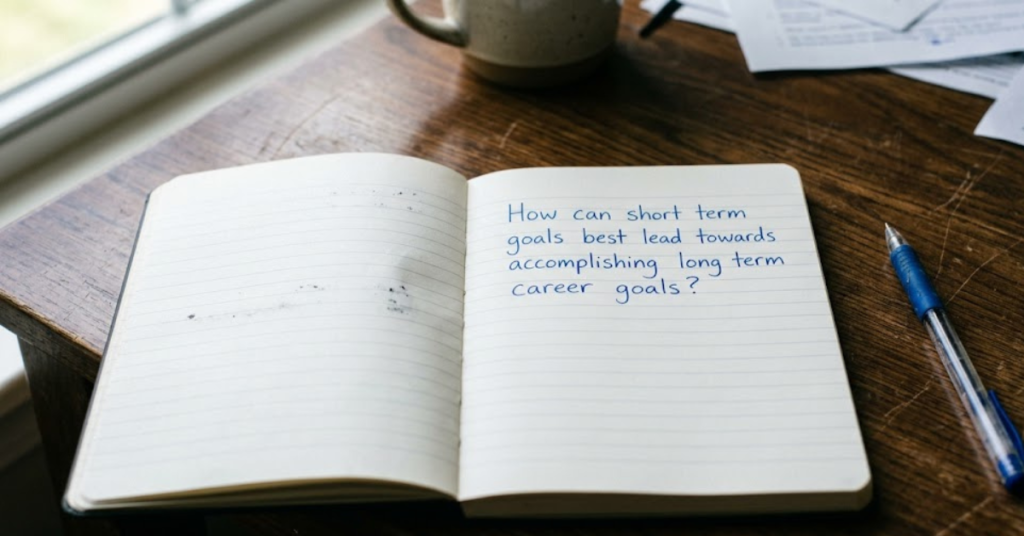 How can short term
goals best lead towards
accomplishing long term
career goals?